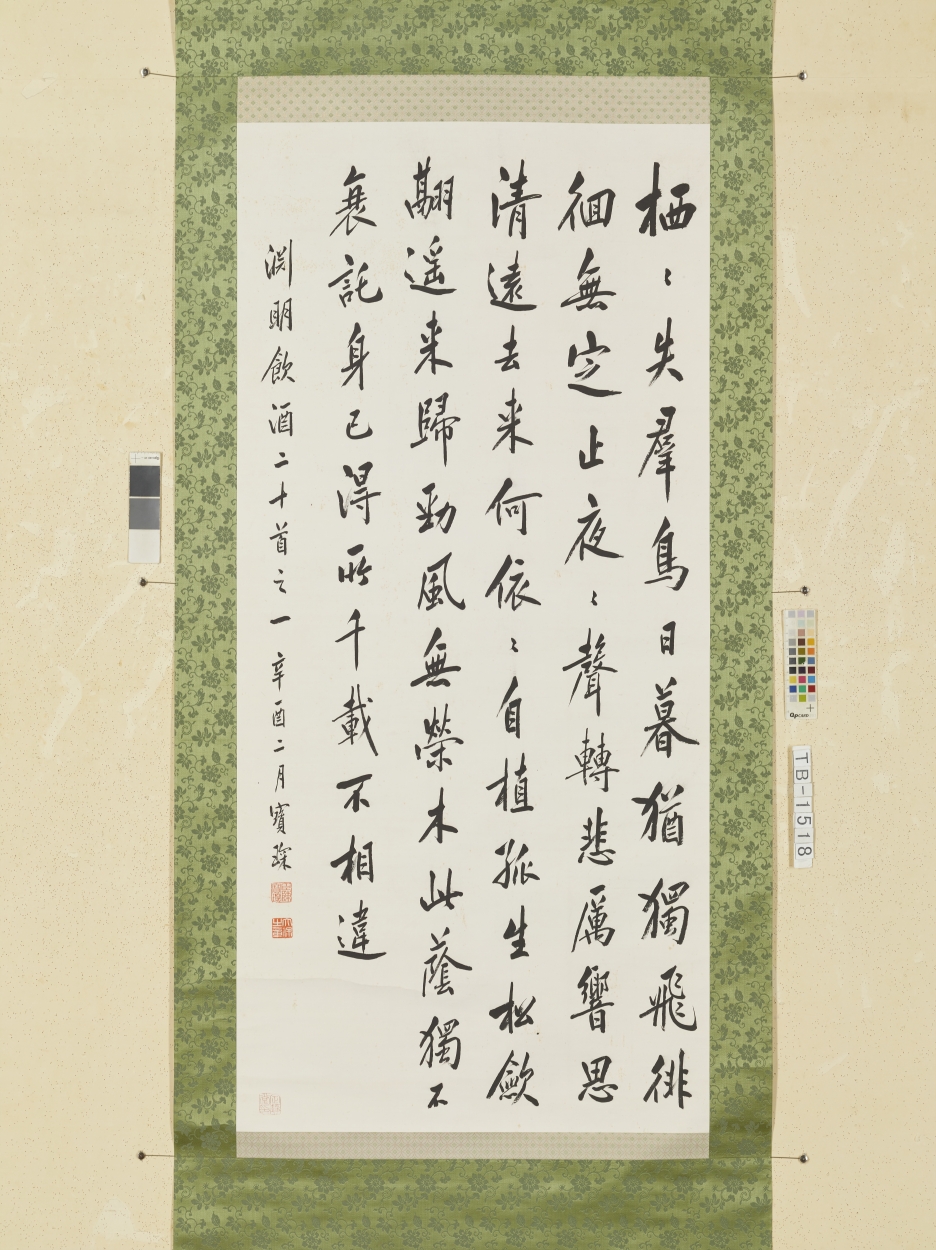 栖〻失羣鳥日暮猶獨飛徘
徊無定止夜〻聲轉悲厲響思
清遠去来何依〻自植孤生松斂
翮遥来歸勁風無榮木此蔭獨不
衰託身已得所千載不相違
淵明飲酒二十首之一 辛酉二月寶琛
TB-1518
QPcard